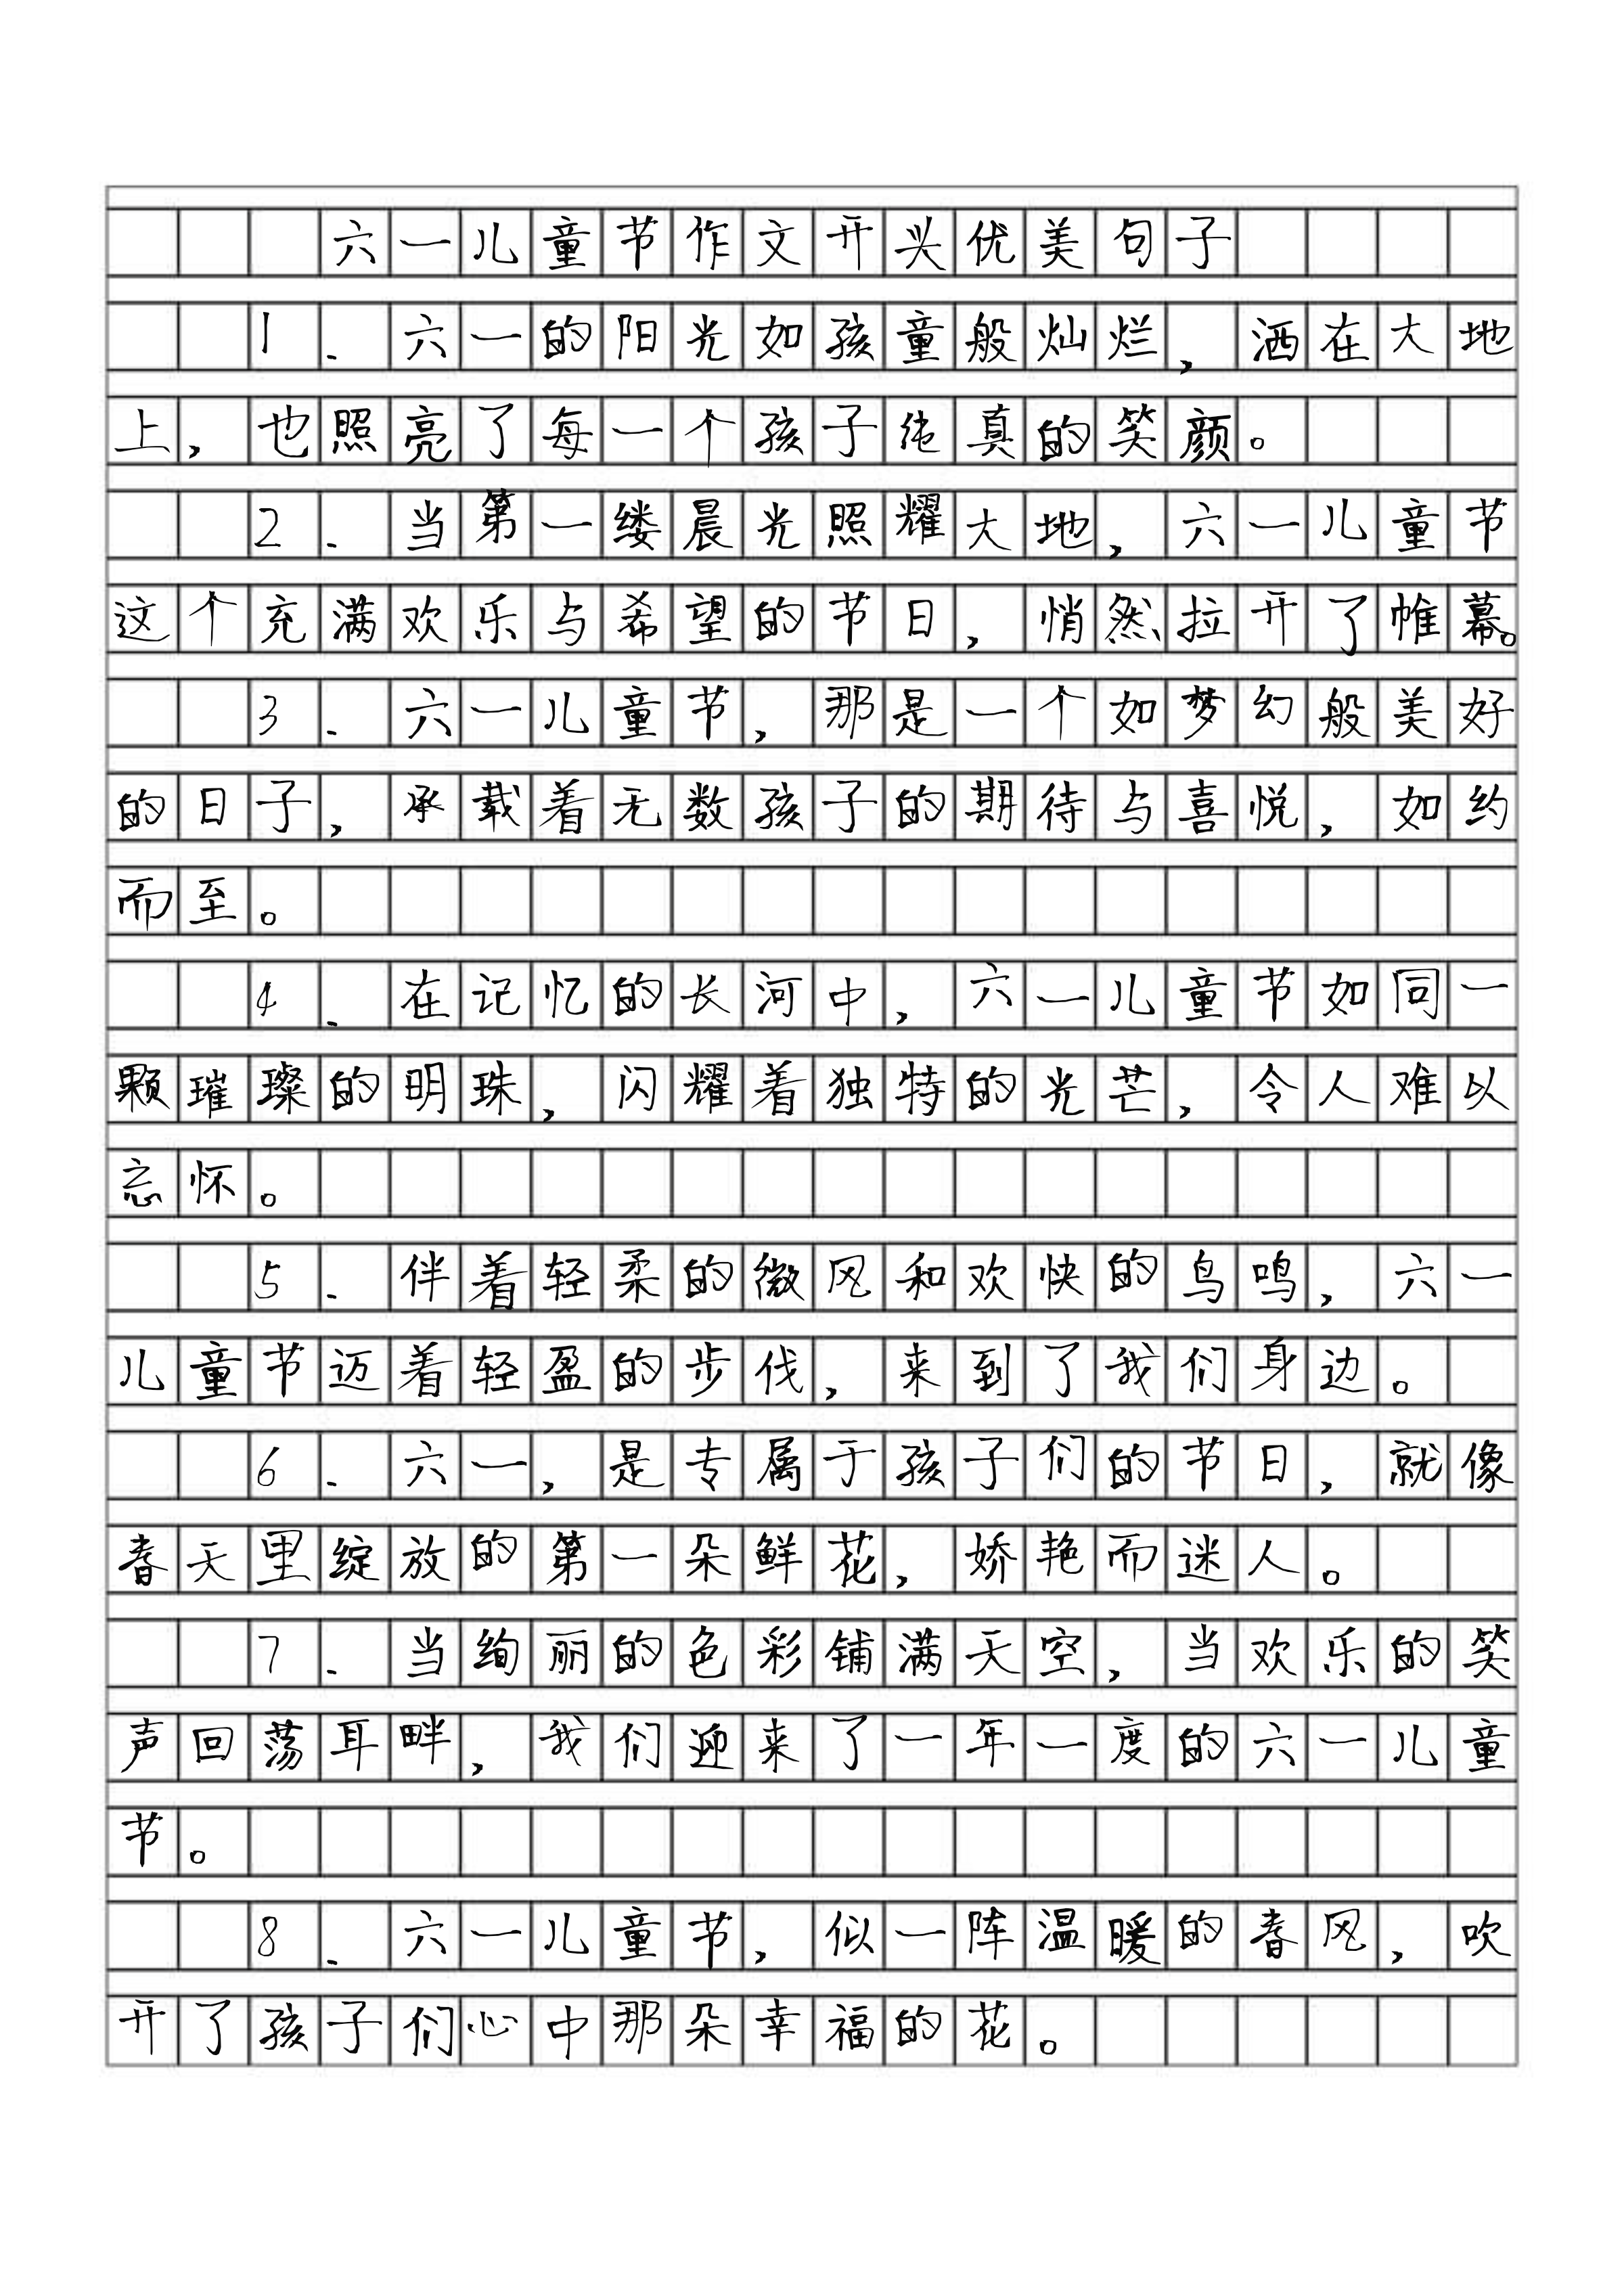 六一儿童节作文开头优美句子
1.六一的阳光如孩童般灿烂，洒在大地
上，也照亮了每一个孩子纯真的笑颜。
2.当第一缕晨光照耀大地，六一儿童节
这个充满欢乐与希望的节日，悄然拉开了帷幕。
3.六一儿童节，那是一个如梦幻般美好
的日子，承载着无数孩子的期待与喜悦，如约
而至。
4.在记忆的长河中，六一儿童节如同一
颗璀璨的明珠，闪耀着独特的光芒，令人难以
忘怀。
5.伴着轻柔的微风和欢快的鸟鸣，六一
儿童节迈着轻盈的步伐，来到了我们身边。
6.六一，是专属于孩子们的节日，就像
春天里绽放的第一朵鲜花，娇艳而迷人。
7.当绚丽的色彩铺满天空，当欢乐的笑
声回荡耳畔，我们迎来了一年一度的六一儿童
节。
8.六一儿童节，似一阵温暖的春风，吹
开了孩子们心中那朵幸福的花。